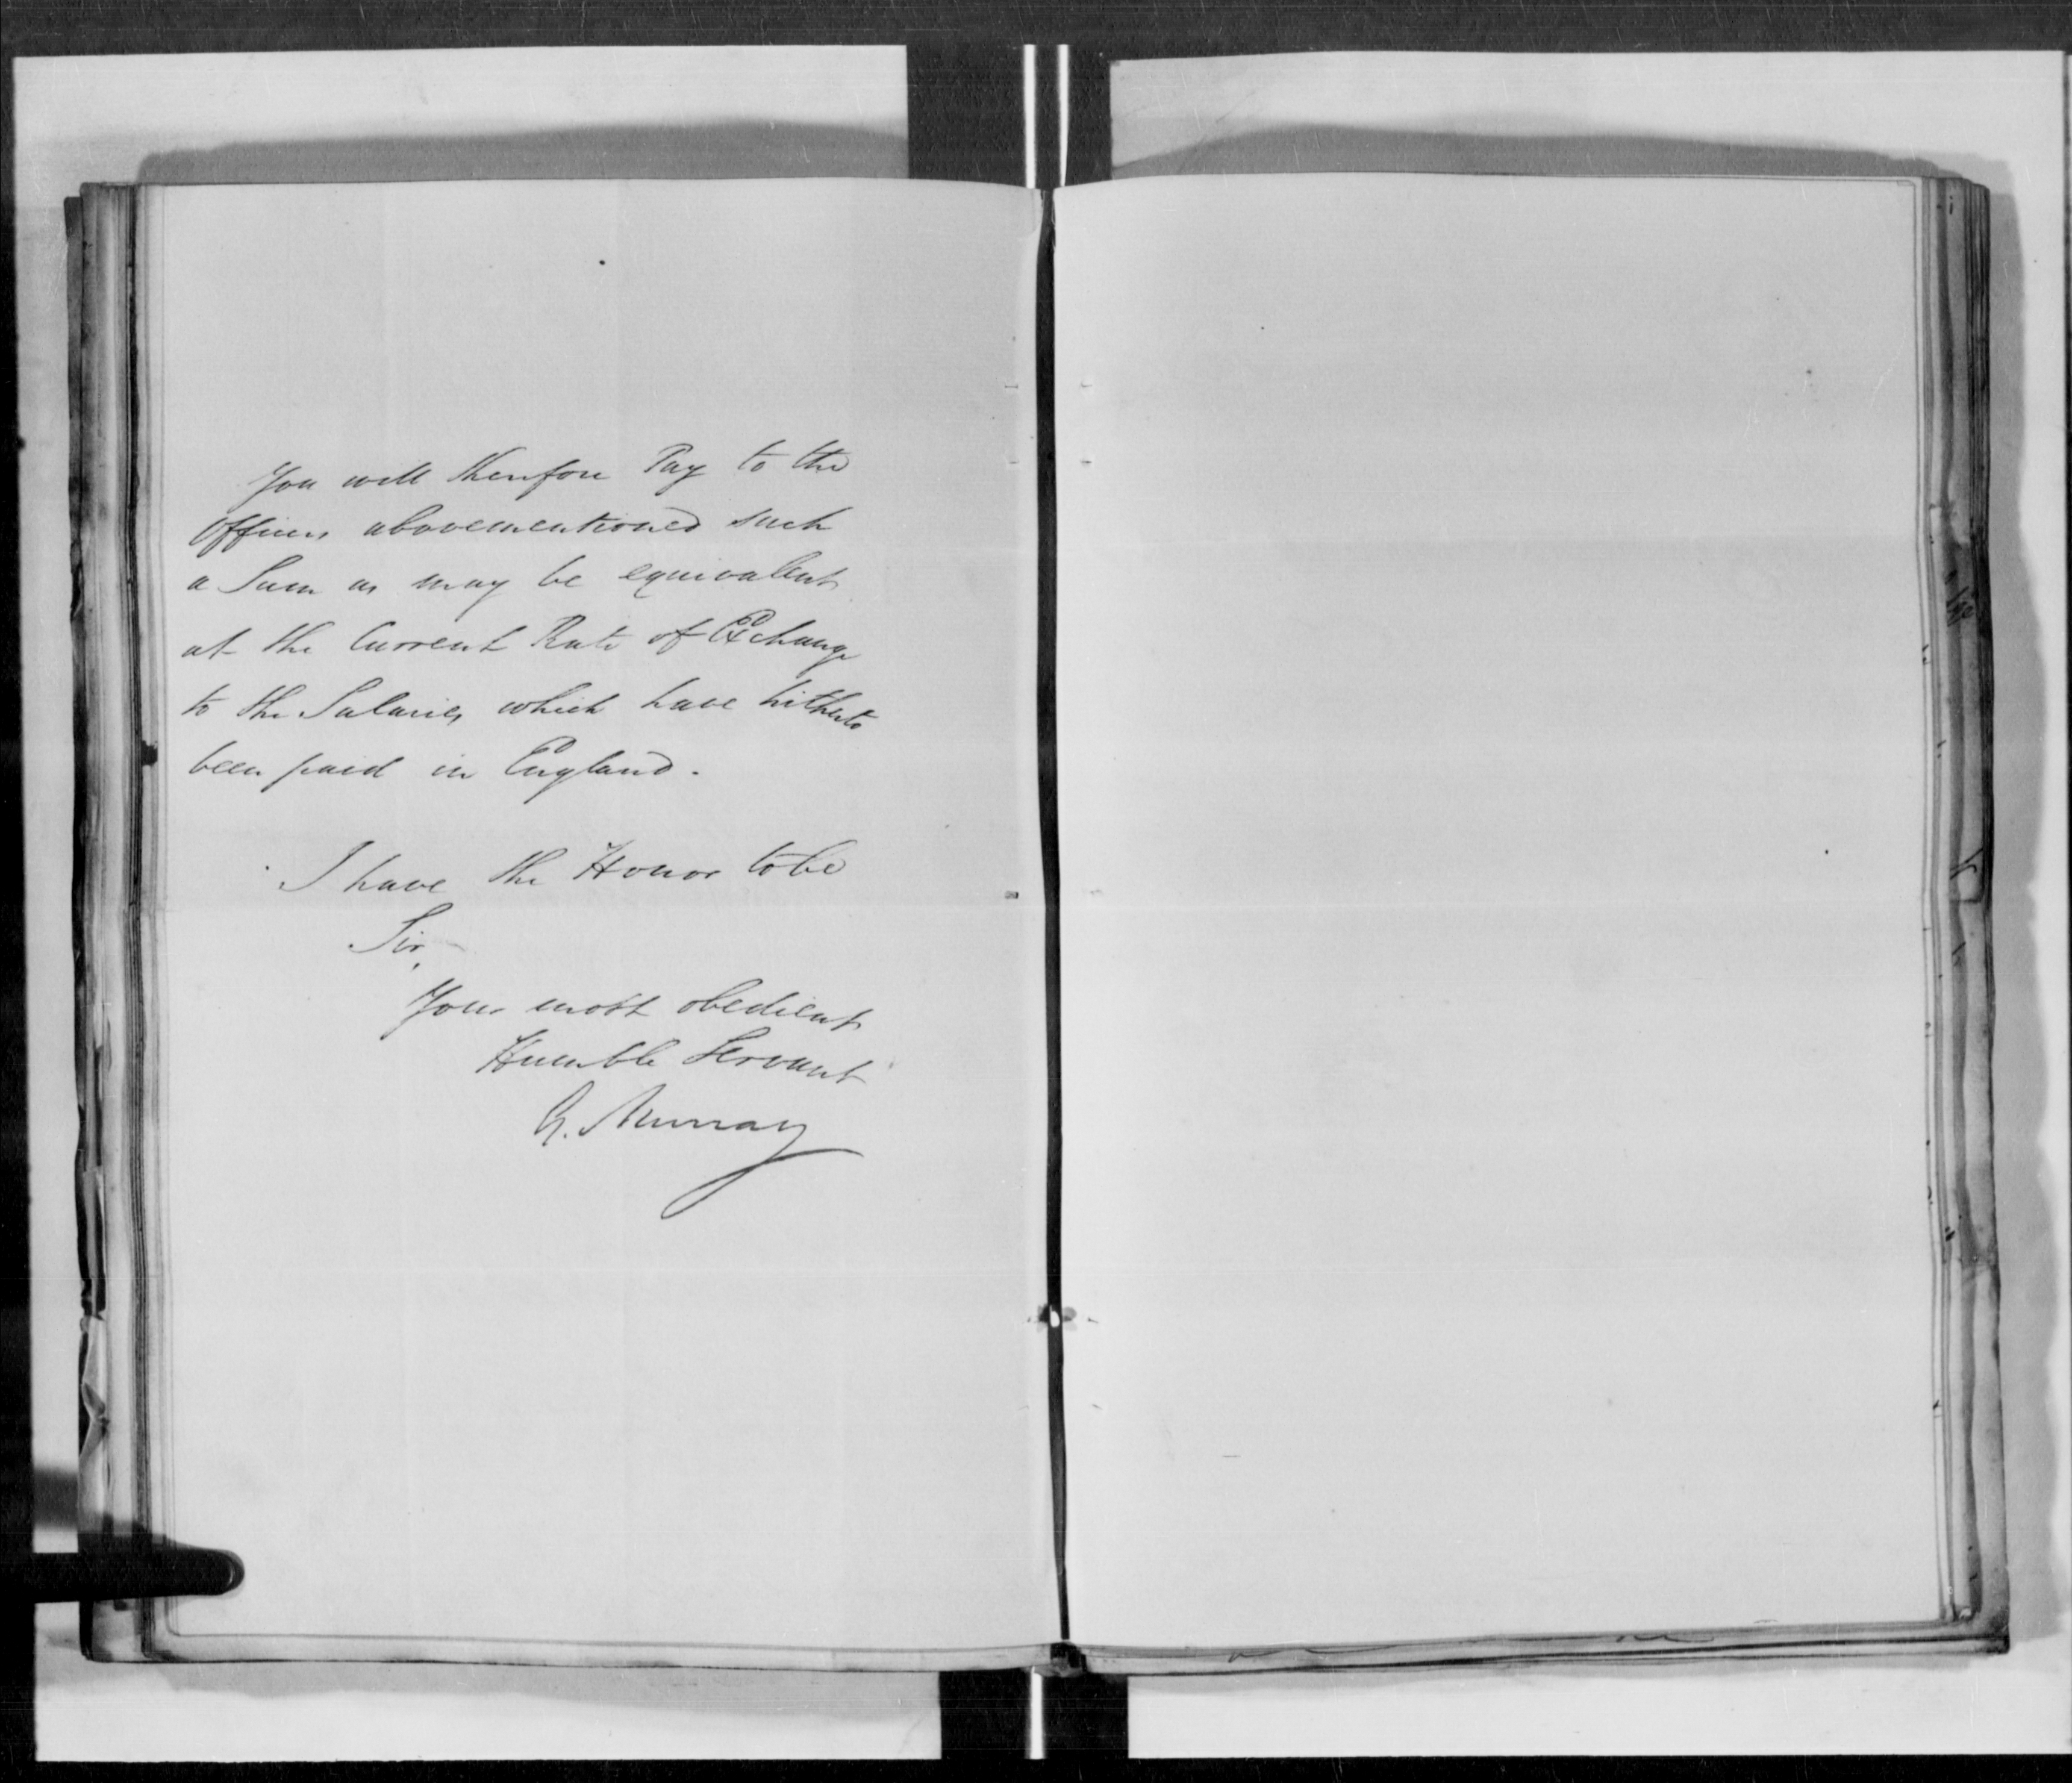 You will therefore Pay to the
Officers abovementioned such
a Sum as may be equivalent
at the Current Rate of Exchange
to the Salaries which have hitherto
been paid in England.
I have the Honor to be
Sir,
Your most obedient
Humble Servant
G. Murray